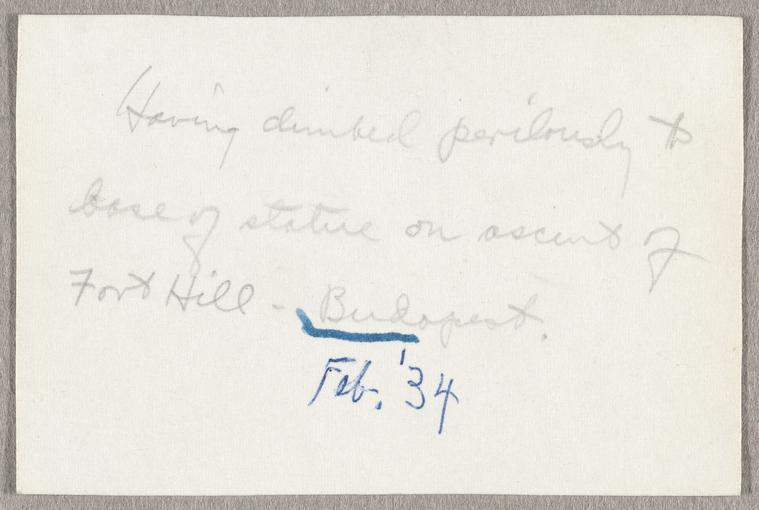 Having climbed perilously to
base of statue on ascent of
Fort Hill - Budapest.
Feb. '34